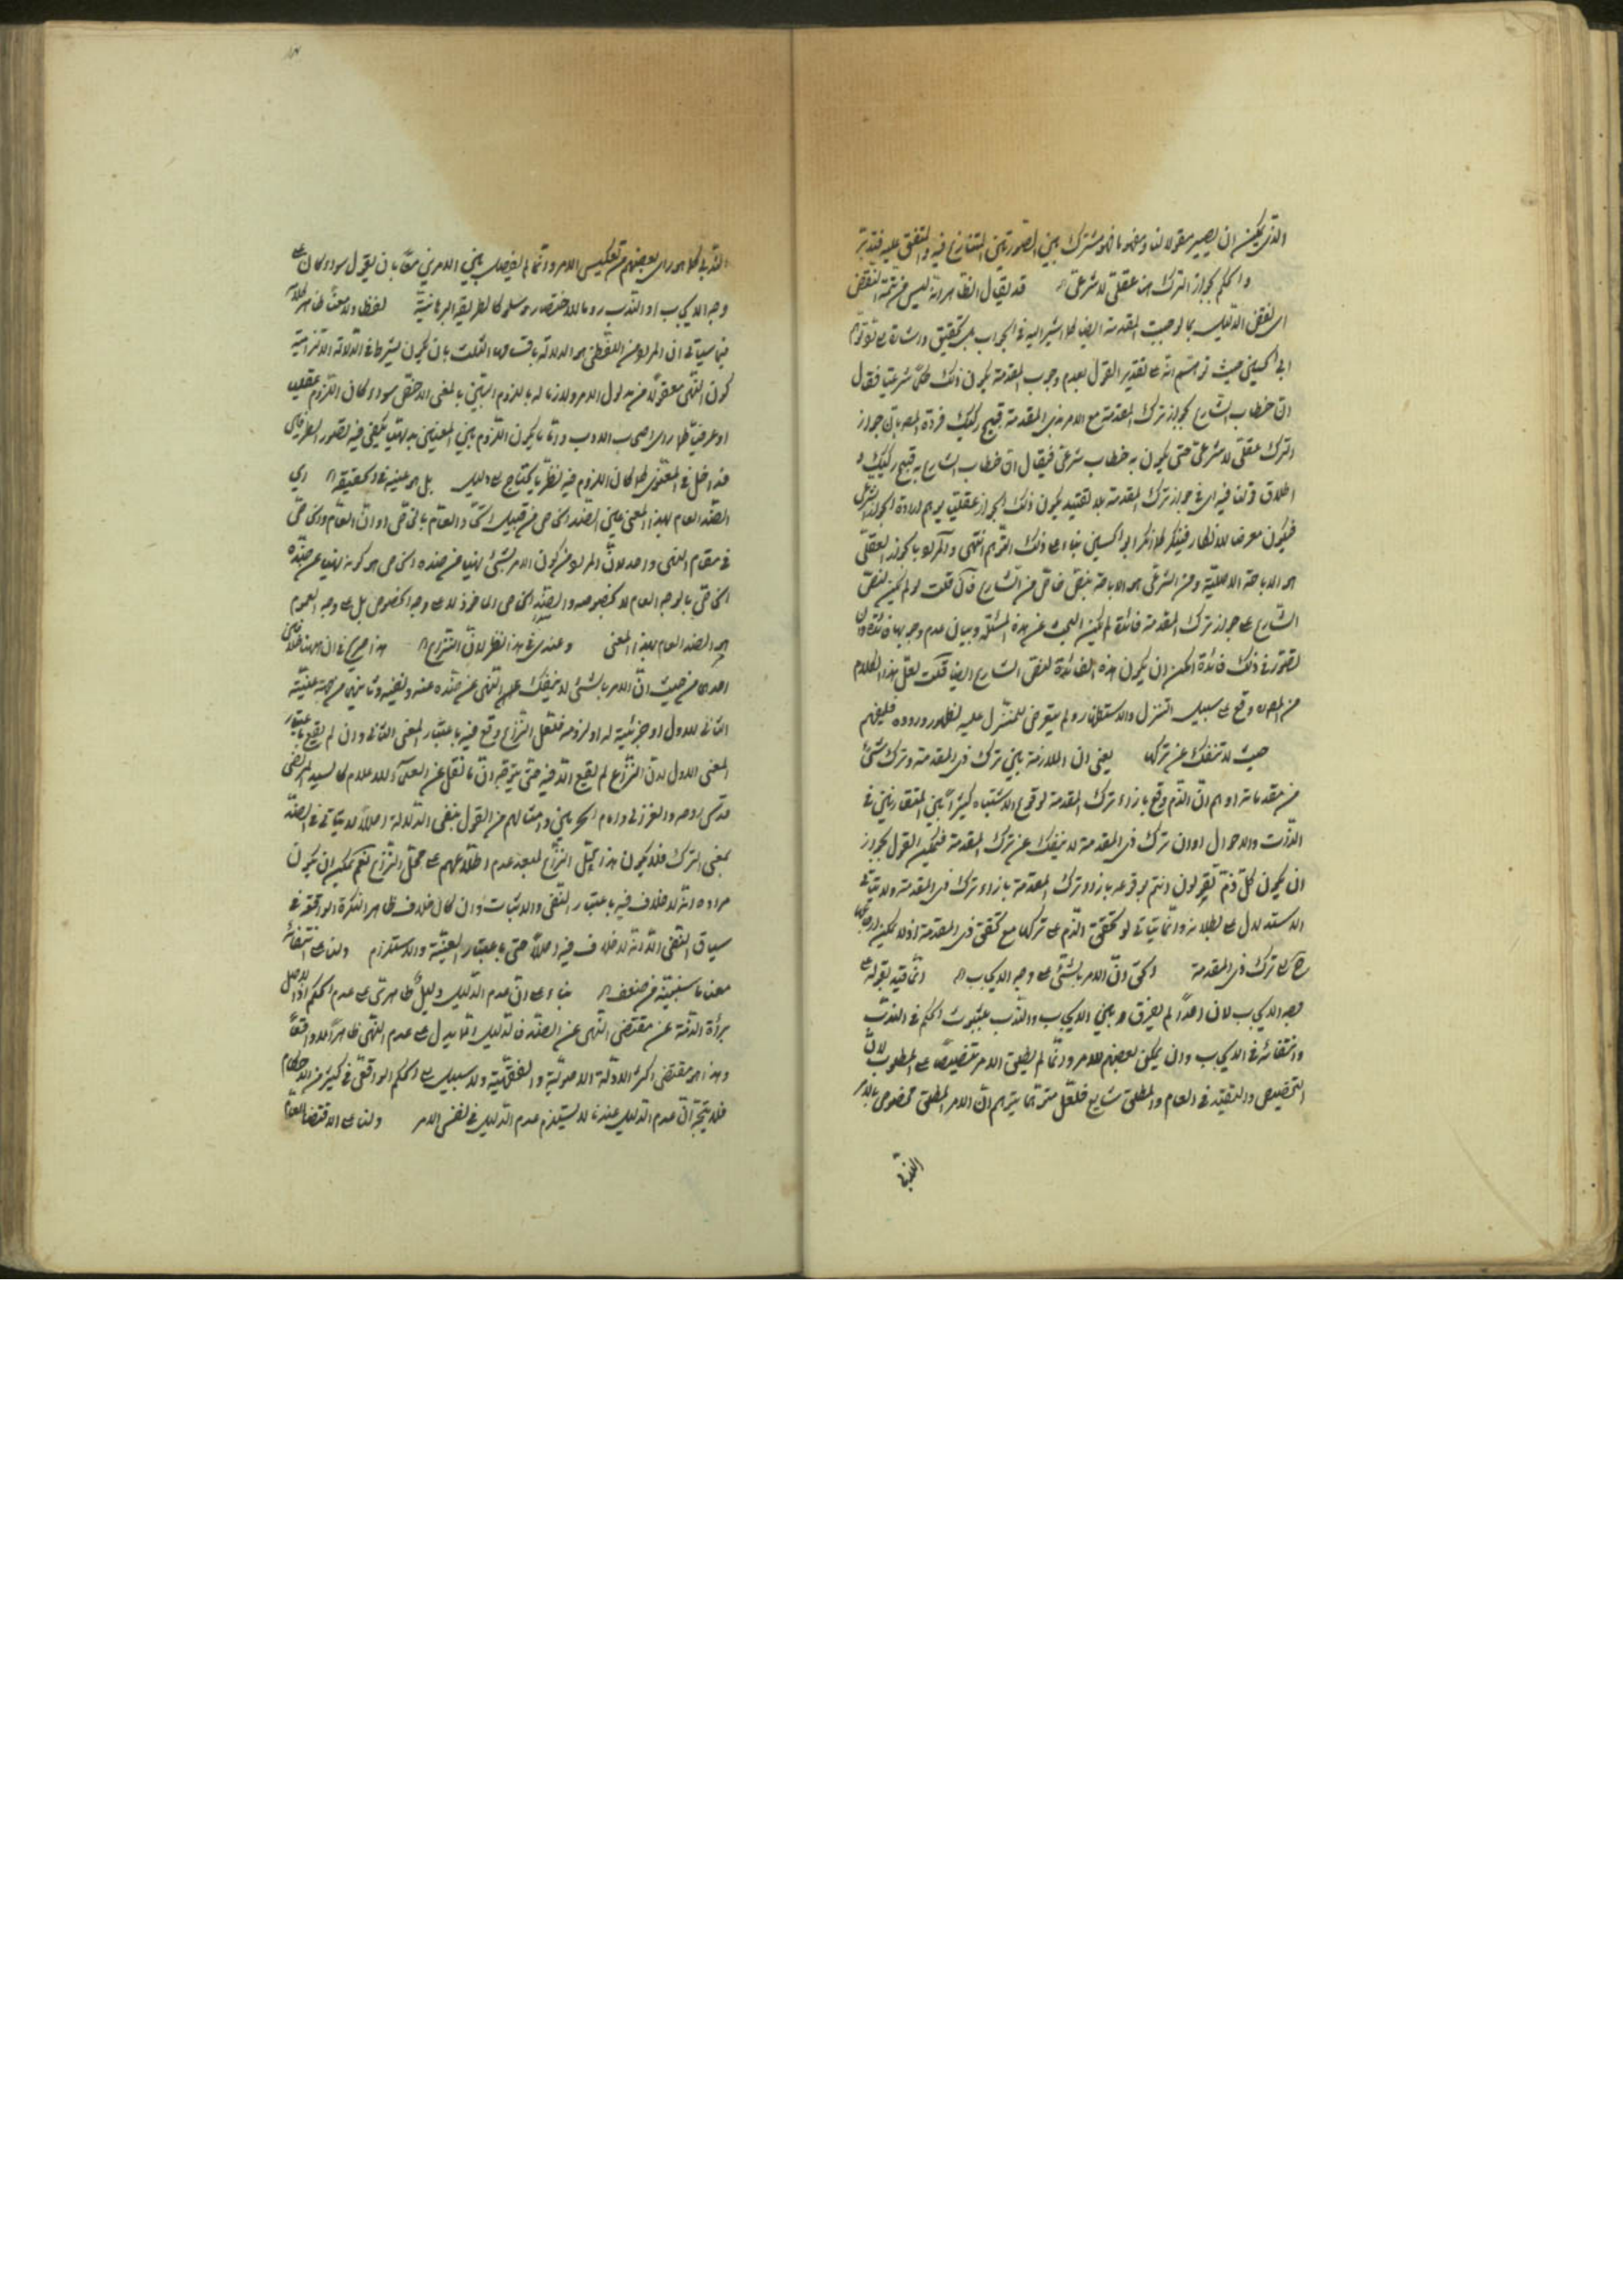 الذى يمكن ان يصير مقولا لنا ومفهوما فهو مشترك بين الصورتين المتنازع فيه والمتفق عليه فتدبر
والحكم بجواز الترك هنا عقلى لا شرعى اه قد يقال الظاهر انه ليس من تتمة النقض
اى نقض الدليل بما لوجبت المقدمة ايضا كما اشير اليه فى الجواب بل تحقيق واشارة الى توهم
ابى الحسين حيث توهم انه على تقدير القول بعدم وجوب المقدمة يكون ذلك حكما شرعيا فقال
ان خطاب الشارع بجواز ترك المقدمة مع الامر بذى المقدمة قبيح ركيك فرده المص بان جواز
الترك عقلى لا شرعى حتى يكون به خطاب شرعى فيقال ان خطاب الشارع به قبيح ركيك و
اطلاق قولنا فيه اى فى جواز ترك المقدمة بلا تقييد بكون ذلك الجواز عقليا يوهم ارادة الجواز الشرعى
فيكون معرضا للانكار فينكر كما انكر ابو الحسين بناء على ذلك التوهم انتهى والمراد بالجواز العقلى
هو الاباحة الاصلية ومن الشرعى هو الاباحة بنص خاص من الشارع فان قلت لو لم يكن لنص
الشارع على جواز ترك المقدمة فائدة لم يكن البحث عن هذه المسئلة وبيان عدم وجوبها فائدة وان
تصور فى ذلك فائدة امكن ان يكون هذه الفائدة لنص الشارع ايضا قلت لعل هذا الكلام
من المص وقع على سبيل التنزل والاستظهار ولم يتعرض للمتنزل عليه لظهور وروده فليفهم
حيث لا تنفك عن تركها يعنى ان الملازمة بين ترك ذى المقدمة وترك شئ
من مقدماته اوهم ان الذم وقع بازاء ترك المقدمة لوقوع الاشتباه كثيرا بين المتقارنين فى
الذوات والاحوال او ان ترك ذى المقدمة لا ينفك عن ترك المقدمة فيمكن القول بجواز
ان يكون كل ذم تقولون انتم بوقوعه بازاء ترك المقدمة بازاء ترك ذى المقدمة ولا يتاتى
الاستدلال على بطلانه وانما يتاتى لو تحقق الذم على تركها مع تحقق ذى المقدمة اذ لا يمكن
ح الى ترك ذى المقدمة الحق ان الامر بالشئ على وجه الايجاب اه انما قيد بقوله على
وجه الايجاب لان احدا لم يفرق بين الايجاب والندب بثبوت الحكم فى الندب
وانتفائه فى الايجاب وان يمكن لبعضهم للامر وانما لم يطلق الامر تنصيصا على المطلوب لان
التخصيص والتقييد فى العام والمطلق شايع فلعل متوهما يتوهم ان الامر المطلق مخصوص بالامر
الندبى كما هو راى بعضهم من تعكيس الامر وانما لم يفصل بين الامرين معا بان يقول سواء كان على
وجه الايجاب او الندب روما للاختصار وسلوكا لطريقة البرهانية لفظا ولا معنى ظاهر كلامه
فيما سياتى ان المراد من اللفظى هو الدلالة باقسامها الثلث بان يكون يشترط فى الدلالة الالتزامية
كون النهى معقولا من مدلول الامر ولازما له باللزوم البين بالمعنى الاخص سواء كان اللزوم عقليا
او عرفيا كما راى اصحاب الادب واما ما يكون اللزوم بين المعنيين بديهيا يكفى فيه تصور الطرفين
فداخل فى المعنوى كما كان اللزوم فيه نظريا يحتاج الى دليل بل هو عينه فى الحقيقة اه اى
الضد العام بهذا المعنى عين الضد الخاص من قبيل اتحاد العام بالخاص او ان العام والخاص
فى مقام النهى واحد لان المراد من كون الامر بالشئ نهيا عن ضده الخاص هو كونه نهيا عن ضده
الخاص بالوجه العام لا بخصوصه والضد الخاص الماخوذ لا على وجه الخصوص بل على وجه العموم
هو الضد العام بهذا المعنى وعندى فى هذا نظر لان النزاع اه هذا صريح فى ان ههنا خلافين
احدهما من حيث ان الامر بالشئ لا ينفك عن النهى عن ضده عنه ونفيه وثانيهما من جهة عينية
الثانى للاول او جزئيته له او لزومه فلعل النزاع وقع فيه باعتبار المعنى الثانى وان لم يقع باعتبار
المعنى الاول لان النزاع لم يقع الا فيه حتى يتوجه ان ما نقل عن العلماء الاعلام كالسيد المرتضى
قدس روحه والغزالى وامام الحرمين وامثالهم من القول بنفى الدلالة اصلا لا يتاتى فى الضد
بمعنى الترك فلا يكون هذا محل النزاع لبعد عدم اطلاعهم على محل النزاع نعم يمكن ان يكون
مراده انه لا خلاف فيه باعتبار النفى والاثبات وان كان خلاف ظاهر النكرة الواقعة فى
سياق النفى الا انه لا خلاف فيه اصلا حتى باعتبار العينية والاستلزام ولنا على انتفائه
معنى ما سنبينه من ضعف اه بناء على ان عدم الدليل دليل ظاهرى على عدم الحكم اذ الاصل
براءة الذمة عن مقتضى النهى عن الضد فالدليل انما يدل على عدم النهى ظاهرا لا واقعا
وهذا هو مقتضى اكثر الادلة الاصولية والفقهية ولا سبيل الى الحكم الواقعى فى كثير من الاحكام
فلا يتجه ان عدم الدليل عندنا لا يستلزم عدم الدليل فى نفس الامر ولنا على الاقتضاء فى العام